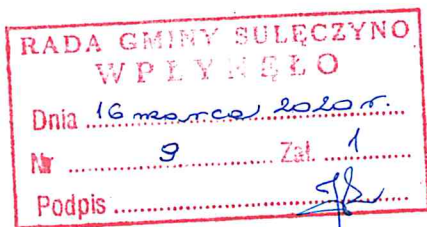 RADA GMINY SULĘCZYNO
WPŁYNĘŁO
Dnia 16 marca 2020 r.
Nr 9 Zał. 1
Podpis